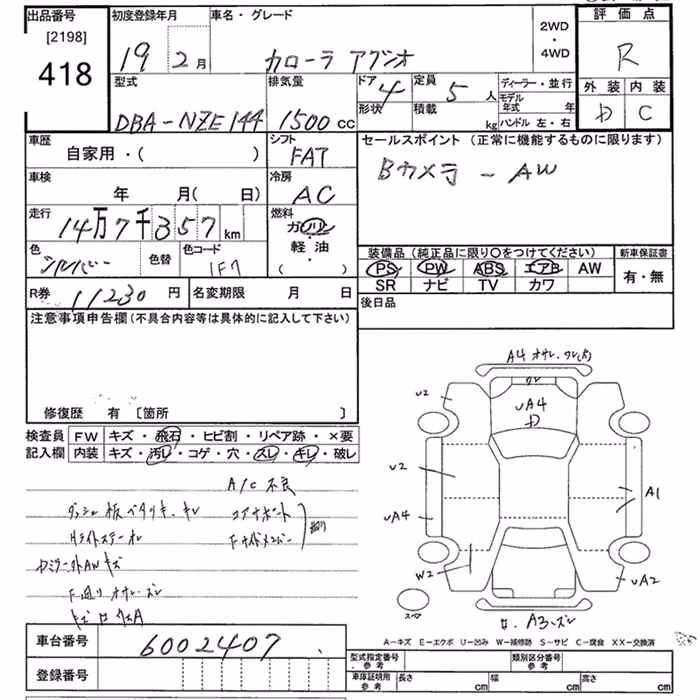 出品番号
[2198]
418
初度登録年月
19 2月
車名・グレード
カローラ アクシオ
2WD
・
4WD
評価点
R
外装 内装
D C
型式
DBA-NZE144
排気量
1500 CC
ドア 4
形状
定員 5人
積載 kg
ディーラー・並行
モデル年式 年
ハンドル 左・右
車歴
自家用・( )
シフト
FAT
セールスポイント (正常に機能するものに限ります)
Bカメラ - AW
車検
年 月( 日)
冷房
AC
走行
14万7千357km
燃料
ガソリン
軽・油
( )
色
シルバー
色替
色コード
1F7
装備品 (純正品に限り〇をつけてください)
PS PW ABS エアB AW
SR ナビ TV カワ
新車保証書
有・無
R券 11230円
名変期限 月 日
後日品
注意事項申告欄 (不具合内容等は具体的に記入して下さい)
修復歴 有 [箇所 ]
検査員
記入欄
FW キズ・飛石・ヒビ割・リペア跡・×要
内装 キズ・汚レ・コゲ・穴・スレ・キレ・破レ
A/C 不良
コアサポート
A4
U2
UA4
D
U2
UA4
W2
A1
UA2
スペア
A3
A-キズ E-エクボ U-凹み W-補修跡 S-サビ C-腐食 XX-交換済
車台番号
6002407
登録番号
型式指定番号
参考
類別区分番号
参考
車庫証明用
参考
長さ cm
幅 cm
高さ cm